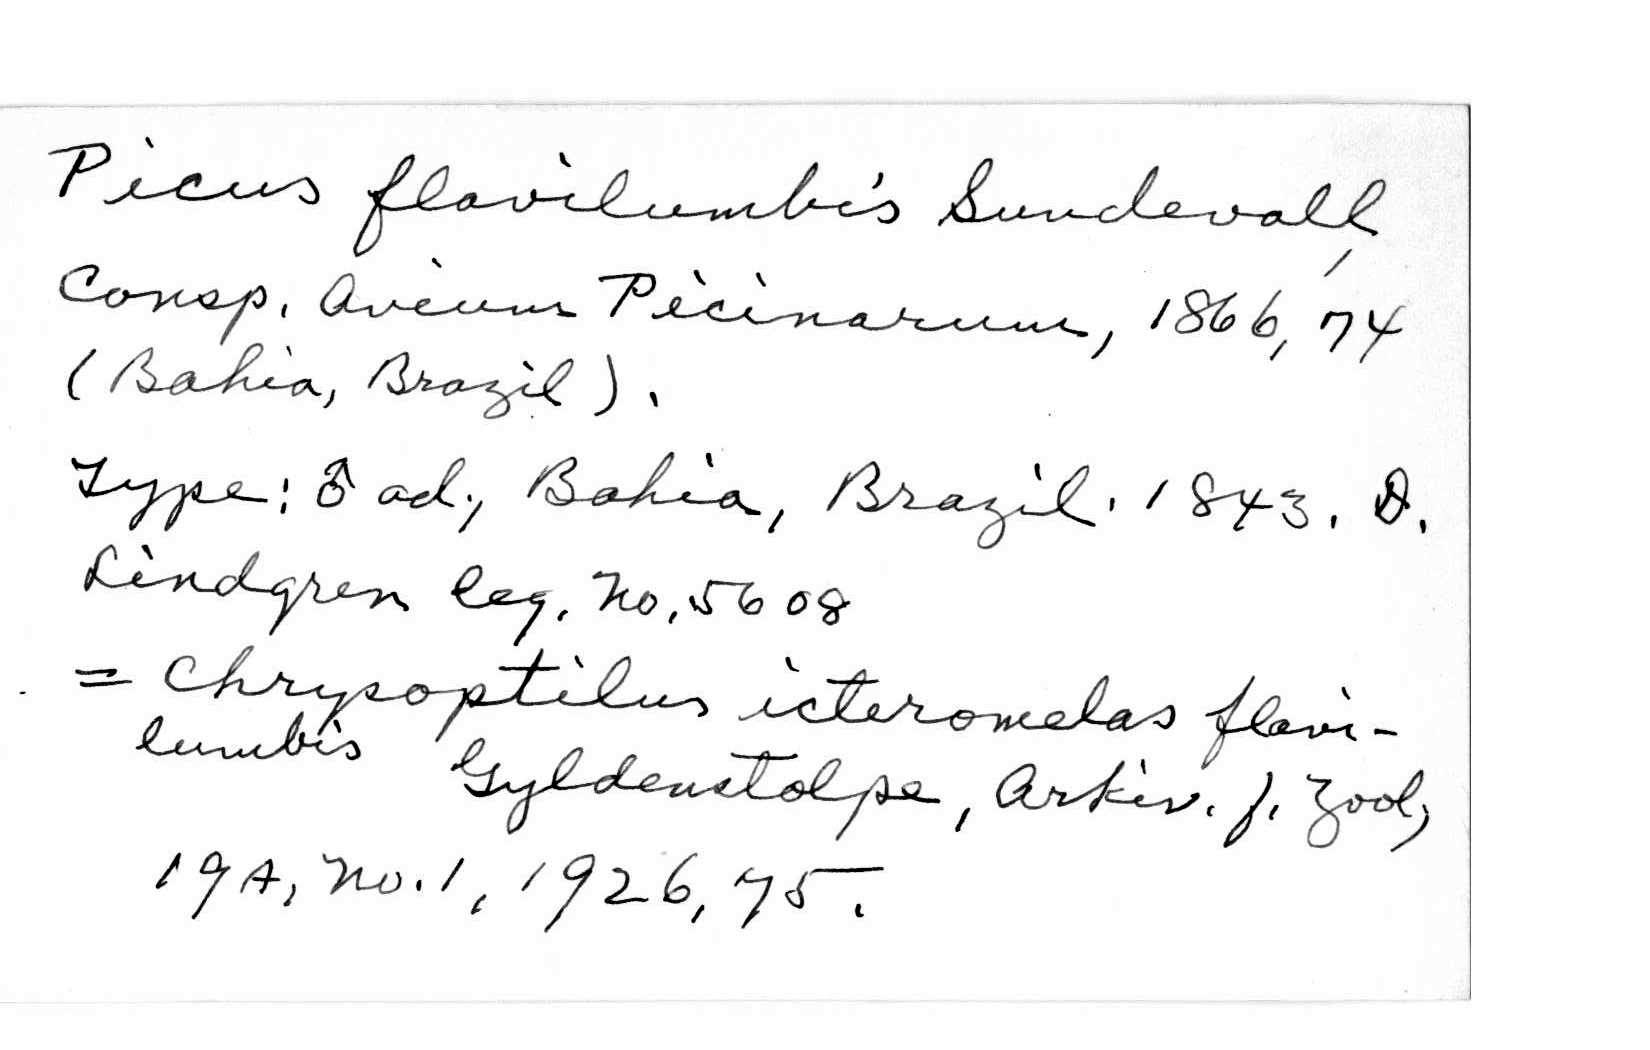 Picus flavilumbis Sundevall,
Consp. Avium Picinarum, 1866, 74
(Bahia, Brazil).
Type: ♂ ad., Bahia, Brazil. 1843. D.
Lindgren leg. No. 5608
= Chrysoptilus icteromelas flavi-
lumbis Gyldenstolpe, Arkiv. f. Zool,
19A, No. 1, 1926, 75.